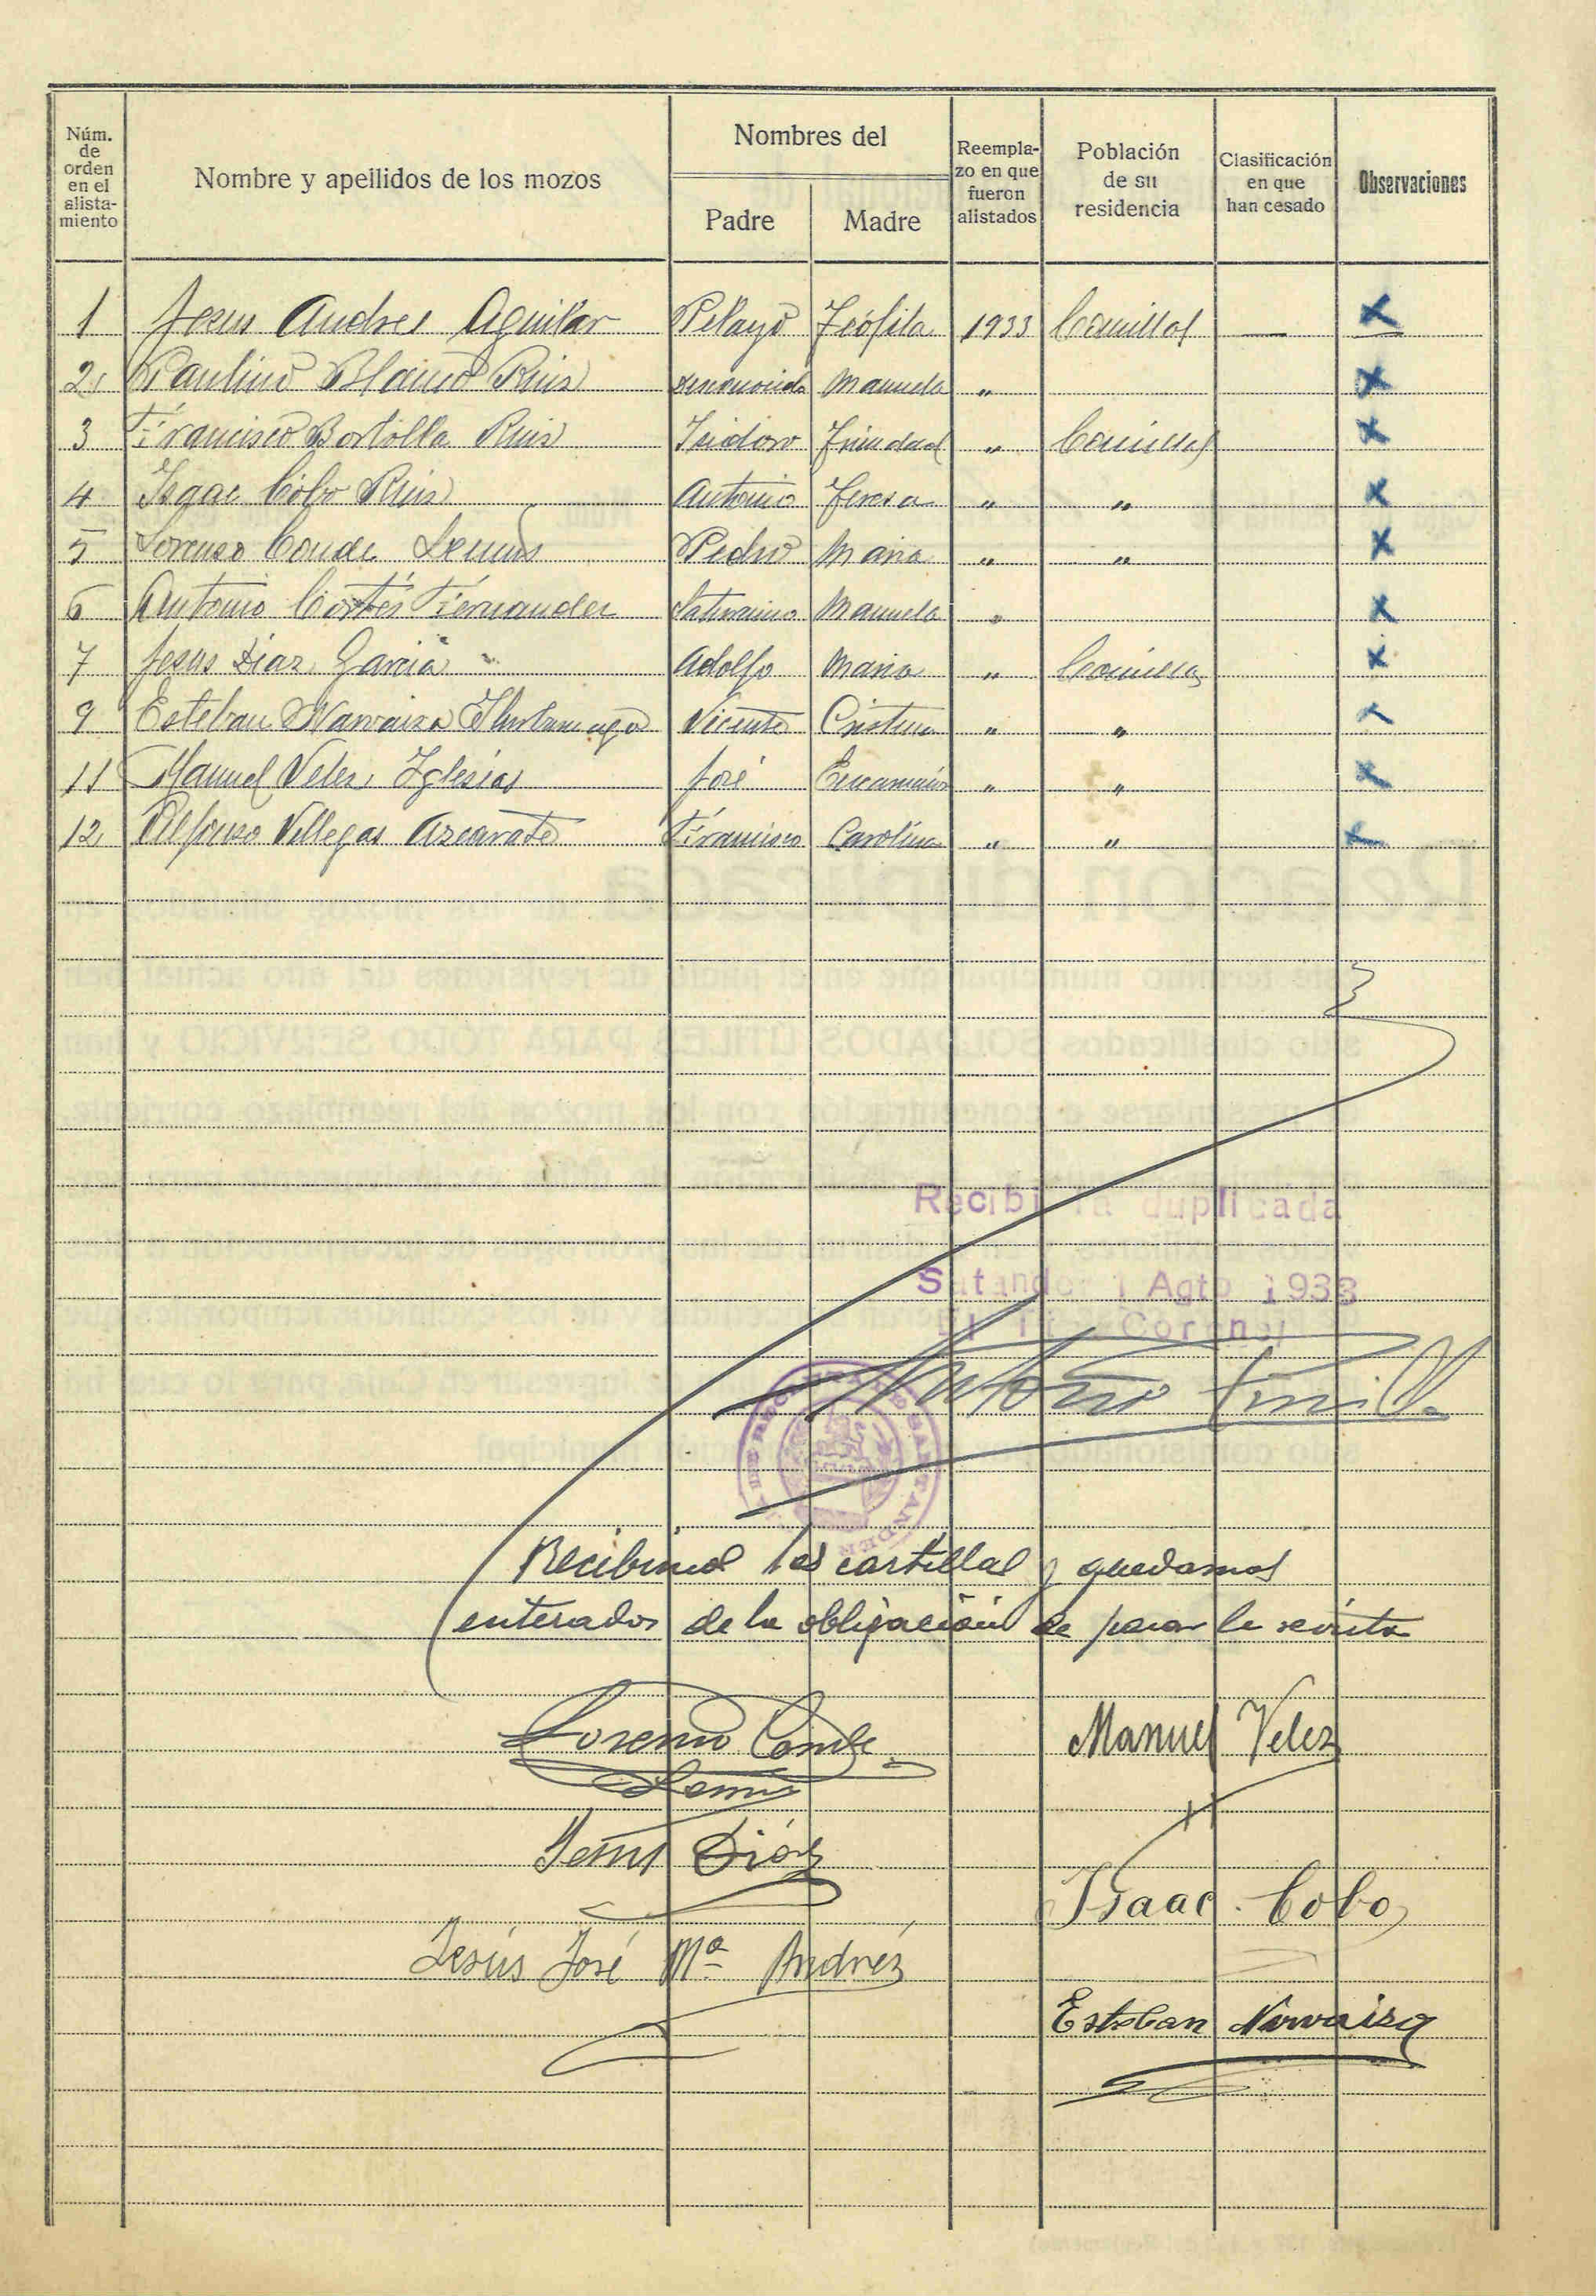 Núm. de orden en el alista- miento
Nombre y apellidos de los mozos
Nombres del
Padre
Madre
Reempla- zo en que fueron alistados
Población de su residencia
Clasificación en que han cesado
Observaciones
1 Jesus Andres Aguilar Pelayo Teófila 1933 Comillas — x
2 Paulino Blanco Ruiz Manuela " x
3 Francisco Bortolla Ruiz Isidoro Trinidad " Comillas x
4 Isaac Cobo Ruiz Antonio Teresa " " x
5 Lorenzo Conde Lemus Pedro Maria " " x
6 Antonio Cortés Fernandez Saturnino Manuela " x
7 Jesus Diaz Garcia Adolfo Maria " Comillas x
9 Esteban Narvaiza Vicente Cristina " "
11 Manuel Velez Iglesias José Encarnación " " x
12 Alfonso Villegas Azcarate Francisco Carolina " " x
Recibí la duplicada
Satander 1 Agto 1933
El Tte. Coronel
Antonio
DE RECLUTA SANTANDER
Recibimos las cartillas y quedamos
enterados de la obligación de pasar la revista
Lorenzo Conde
Lemus
Manuel Velez
Jesus Diáz
Isaac Cobo
Jesús José Mª Andrés
Esteban Narvaiza